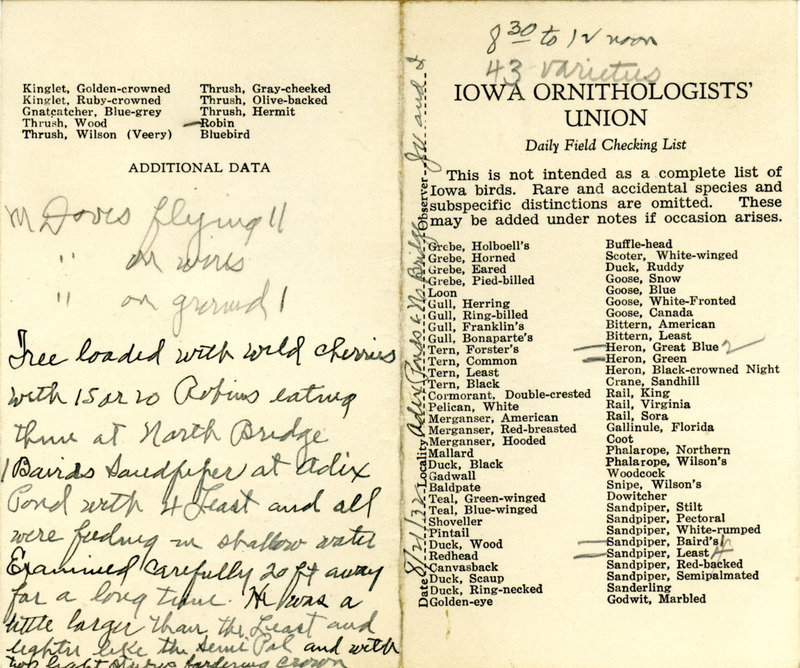 Kinglet, Golden-crowned
Kinglet, Ruby-crowned
Gnatcatcher, Blue-grey
Thrush, Wood
Thrush, Wilson (Veery)
Thrush, Gray-cheeked
Thrush, Olive-backed
Thrush, Hermit
Robin
Bluebird
ADDITIONAL DATA
M Doves flying 11
" on wires
" on ground 1
Tree loaded with wild cherries
with 15 or 20 Robins eating
them at North Bridge
1 Bairds Sandpiper at Adix
Pond with 4 Least and all
were feeding in shallow water
Examined carefully 20 ft away
for a long time. He was a
little larger than the Least and
lighter like the Semi Pal and with
two light stripes bordering crown
8 30 to 12 noon
43 varieties
IOWA ORNITHOLOGISTS'
UNION
Daily Field Checking List
This is not intended as a complete list of
Iowa birds. Rare and accidental species and
subspecific distinctions are omitted. These
may be added under notes if occasion arises.
Date 8/21/32 Locality Adix Pond & No. Bridge Observer and
Grebe, Holboell's
Grebe, Horned
Grebe, Eared
Grebe, Pied-billed
Loon
Gull, Herring
Gull, Ring-billed
Gull, Franklin's
Gull, Bonaparte's
Tern, Forster's
Tern, Common
Tern, Least
Tern, Black
Cormorant, Double-crested
Pelican, White
Merganser, American
Merganser, Red-breasted
Merganser, Hooded
Mallard
Duck, Black
Gadwall
Baldpate
Teal, Green-winged
Teal, Blue-winged
Shoveller
Pintail
Duck, Wood
Redhead
Canvasback
Duck, Scaup
Duck, Ring-necked
Golden-eye
Buffle-head
Scoter, White-winged
Duck, Ruddy
Goose, Snow
Goose, Blue
Goose, White-Fronted
Goose, Canada
Bittern, American
Bittern, Least
Heron, Great Blue 2
Heron, Green
Heron, Black-crowned Night
Crane, Sandhill
Rail, King
Rail, Virginia
Rail, Sora
Gallinule, Florida
Coot
Phalarope, Northern
Phalarope, Wilson's
Woodcock
Snipe, Wilson's
Dowitcher
Sandpiper, Stilt
Sandpiper, Pectoral
Sandpiper, White-rumped
Sandpiper, Baird's 1
Sandpiper, Least 4
Sandpiper, Red-backed
Sandpiper, Semipalmated
Sanderling
Godwit, Marbled